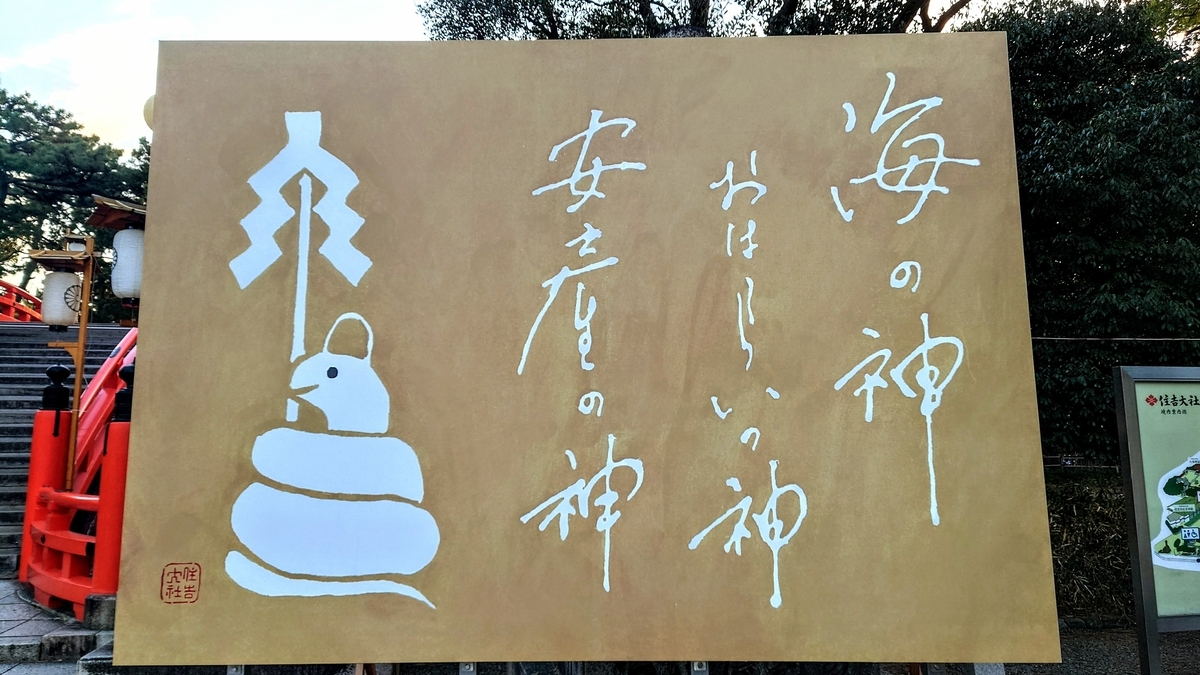 海の神
おはらいの神
安産の神
住吉
大社
住吉大社
境内案内図